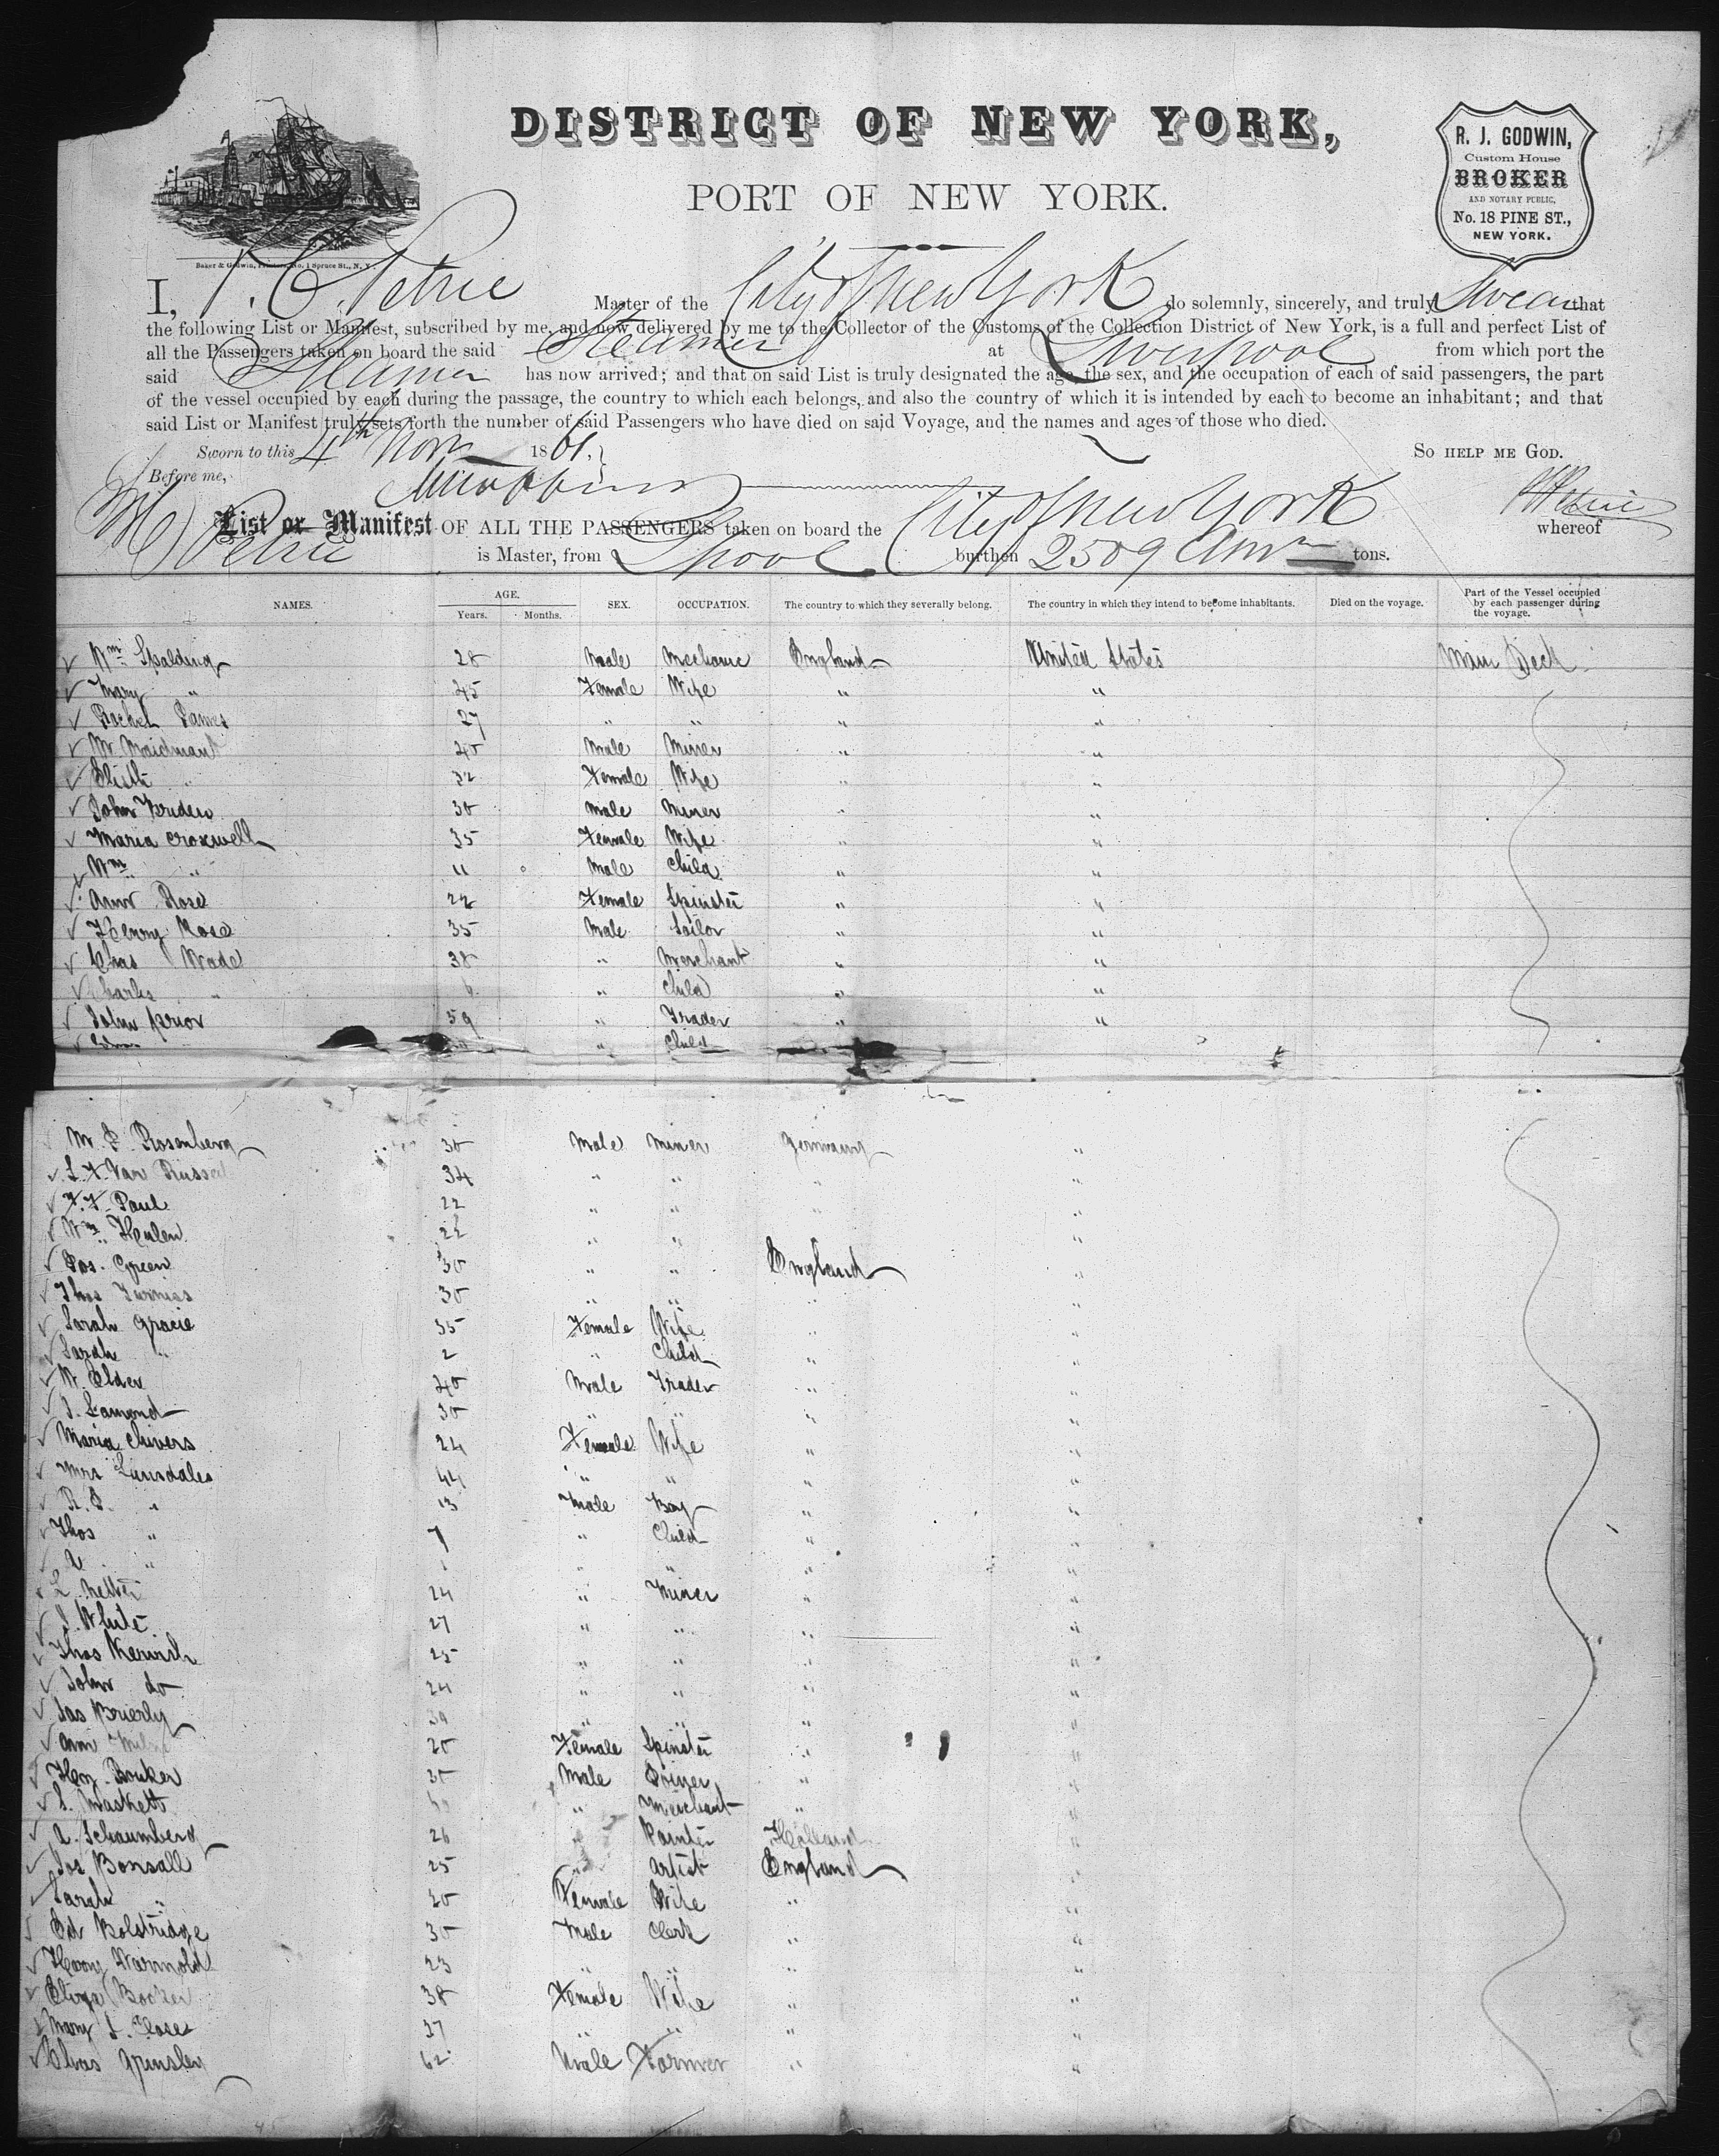 DISTRICT OF NEW YORK,
PORT OF NEW YORK.
R. J. GODWIN,
Custom House
BROKER
AND NOTARY PUBLIC,
No. 18 PINE ST.,
NEW YORK.
Baker & Godwin, Printers, No. 1 Spruce St., N. Y.
I, Petrie Master of the City of New York do solemnly, sincerely, and truly Swear that
the following List or Manifest, subscribed by me, and now delivered by me to the Collector of the Customs of the Collection District of New York, is a full and perfect List of
all the Passengers taken on board the said Steamer at Liverpool from which port the
said Steamer has now arrived; and that on said List is truly designated the age, the sex, and the occupation of each of said passengers, the part
of the vessel occupied by each during the passage, the country to which each belongs, and also the country of which it is intended by each to become an inhabitant; and that
said List or Manifest truly sets forth the number of said Passengers who have died on said Voyage, and the names and ages of those who died.
Sworn to this 4th Nov 1861. So help me God.
Before me,
List or Manifest OF ALL THE PASSENGERS taken on board the City of New York whereof
Petrie is Master, from Lpool burthen 2509 tons.
NAMES. AGE. Years. Months. SEX. OCCUPATION. The country to which they severally belong. The country in which they intend to become inhabitants. Died on the voyage. Part of the Vessel occupied by each passenger during the voyage.
Wm Spalding 28 Male Mechanic England United States Main Deck
Mary " 45 Female Wife " "
Rachel James 27 " " " "
W. Maidmant 40 Male Miner " "
32 Female Wife " "
John 30 Male Miner " "
Maria Croxwell 35 Female Wife " "
Wm " 11 Male Child " "
Ann Rose 22 Female Spinster " "
Henry Rose 35 Male Sailor " "
Chas Wade 38 " Merchant " "
Charles " 6 " Child " "
John Prior 59 " Trader " "
" Child
Rosenberg 30 Male Miner Germany "
Van 34 " " " "
Paul 22 " " " "
Wm 22 " " "
Jos. Green 30 " " England "
Thos 30 " " " "
Sarah Gracie 35 Female Wife " "
Sarah " 2 " Child " "
W. Elder 40 Male Trader " "
J. Lamond 30 " " " "
Maria Chivers 24 Female Wife " "
Mrs Lunsdales 44 " " " "
" 13 Male Boy " "
Thos " 7 " Child " "
A " " " " "
24 " Miner " "
J. White 27 " " " "
Thos Kewish 25 " " " "
John do 24 " " " "
Jas Brierly " " " "
Ann 20 Female Spinster " "
Hen. Bouker Male Joiner " "
S. Maskett " Merchant " "
A. Schaumberg 26 " Painter Holland "
Jos Bonsall 25 " Artist England "
Sarah " 20 Female Wife " "
Ed Bolstridge 30 Male Clerk " "
Henry Warmold 23 " " " "
Eliza Booker 38 Female Wife " "
Mary 37 " " " "
Chas Grinsley 62 Male Farmer " "